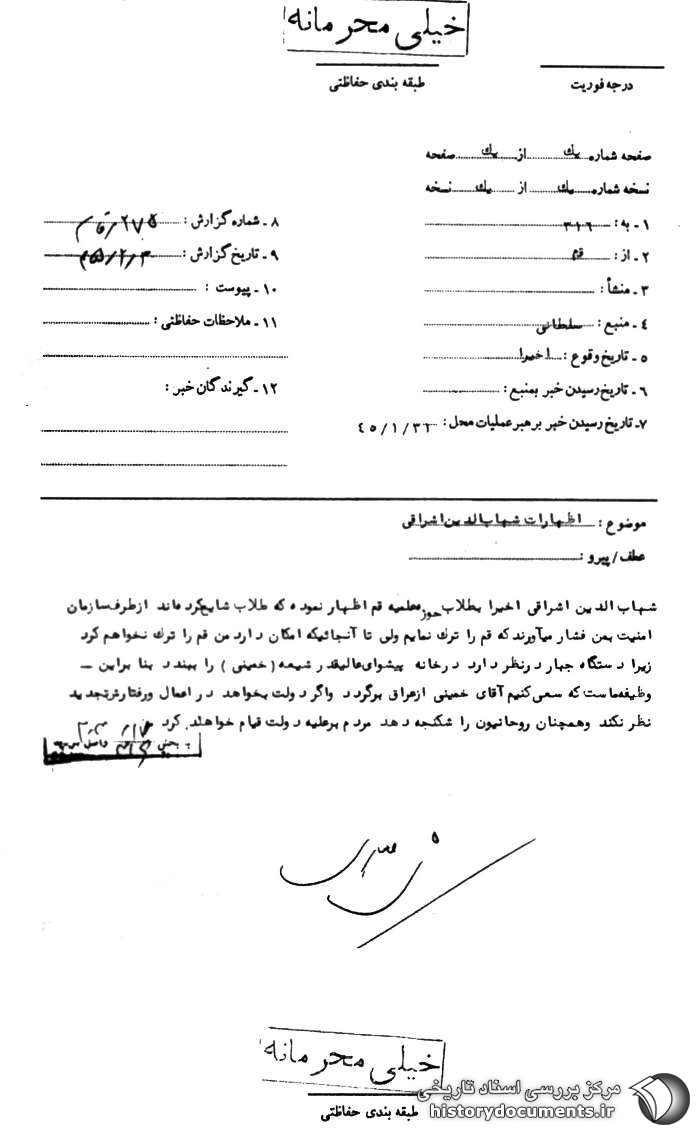 خیلی محرمانه
طبقه بندی حفاظتی
درجه فوریت
صفحه شماره یک از یک صفحه
نسخه شماره یک از یک نسخه
۱ـ به: ۳۱۶
۲ـ از: قم
۳ـ منشأ:
۴ـ منبع: سلطانی
۵ـ تاریخ وقوع: اخیرا
۶ـ تاریخ رسیدن خبر بمنبع:
۷ـ تاریخ رسیدن خبر برهبر عملیات محل: ۴۵/۱/۳۱
۸ـ شماره گزارش: ۲۷۵/قم
۹ـ تاریخ گزارش: ۴۵/۲/۳
۱۰ـ پیوست:
۱۱ـ ملاحظات حفاظتی:
۱۲ـ گیرندگان خبر:
موضوع: اظهارات شهاب الدین اشراقی
عطف/پیرو:
شهاب الدین اشراقی اخیرا بطلاب حوزه علمیه قم اظهار نموده که طلاب شایع کرده‌اند ازطرف سازمان
امنیت بمن فشار میآورند که قم را ترک نمایم ولی تا آنجائیکه امکان دارد من قم را ترک نخواهم کرد
زیرا دستگاه جبار درنظر دارد درخانه پیشوای عالیقدر شیعه (خمینی) را ببندد بنا براین ـ
وظیفه‌ماست که سعی کنیم آقای خمینی ازعراق برگردد واگر دولت بخواهد در اعمال ورفتارش تجدید
نظر نکند وهمچنان روحانیون را شکنجه دهد مردم برعلیه دولت قیام خواهند کرد
خیلی محرمانه
طبقه بندی حفاظتی
مرکز بررسی اسناد تاریخی
historydocuments.ir